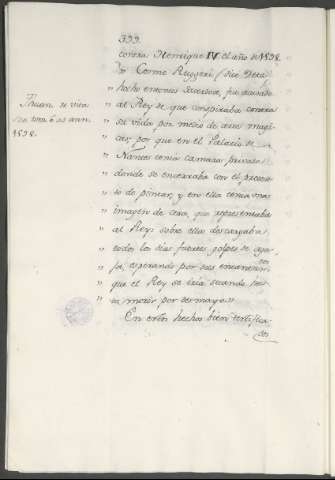 399.
contra Henrique IV el año de 1598.
"Cosme Ruggeri (dice
hecho entonces fue acusado
" al Rey de que conspiraba contra
" su vida por medio de artes magi-
" cas, por que en el Palacio de
" Nantes tenia camara privada
" donde se encerraba con el pretex-
" to de pintar, y en ella tenia una
" imagen de cera, que representaba
" al Rey: sobre ella descargaba
" todos los dias fuertes golpes de
" esperando por sus encantos
" que el Rey se iria secando has-
" ta morir por desmayo"
En estos hechos bien certifica-
dos
Thuan. de vita
sua ad ann.
1598.